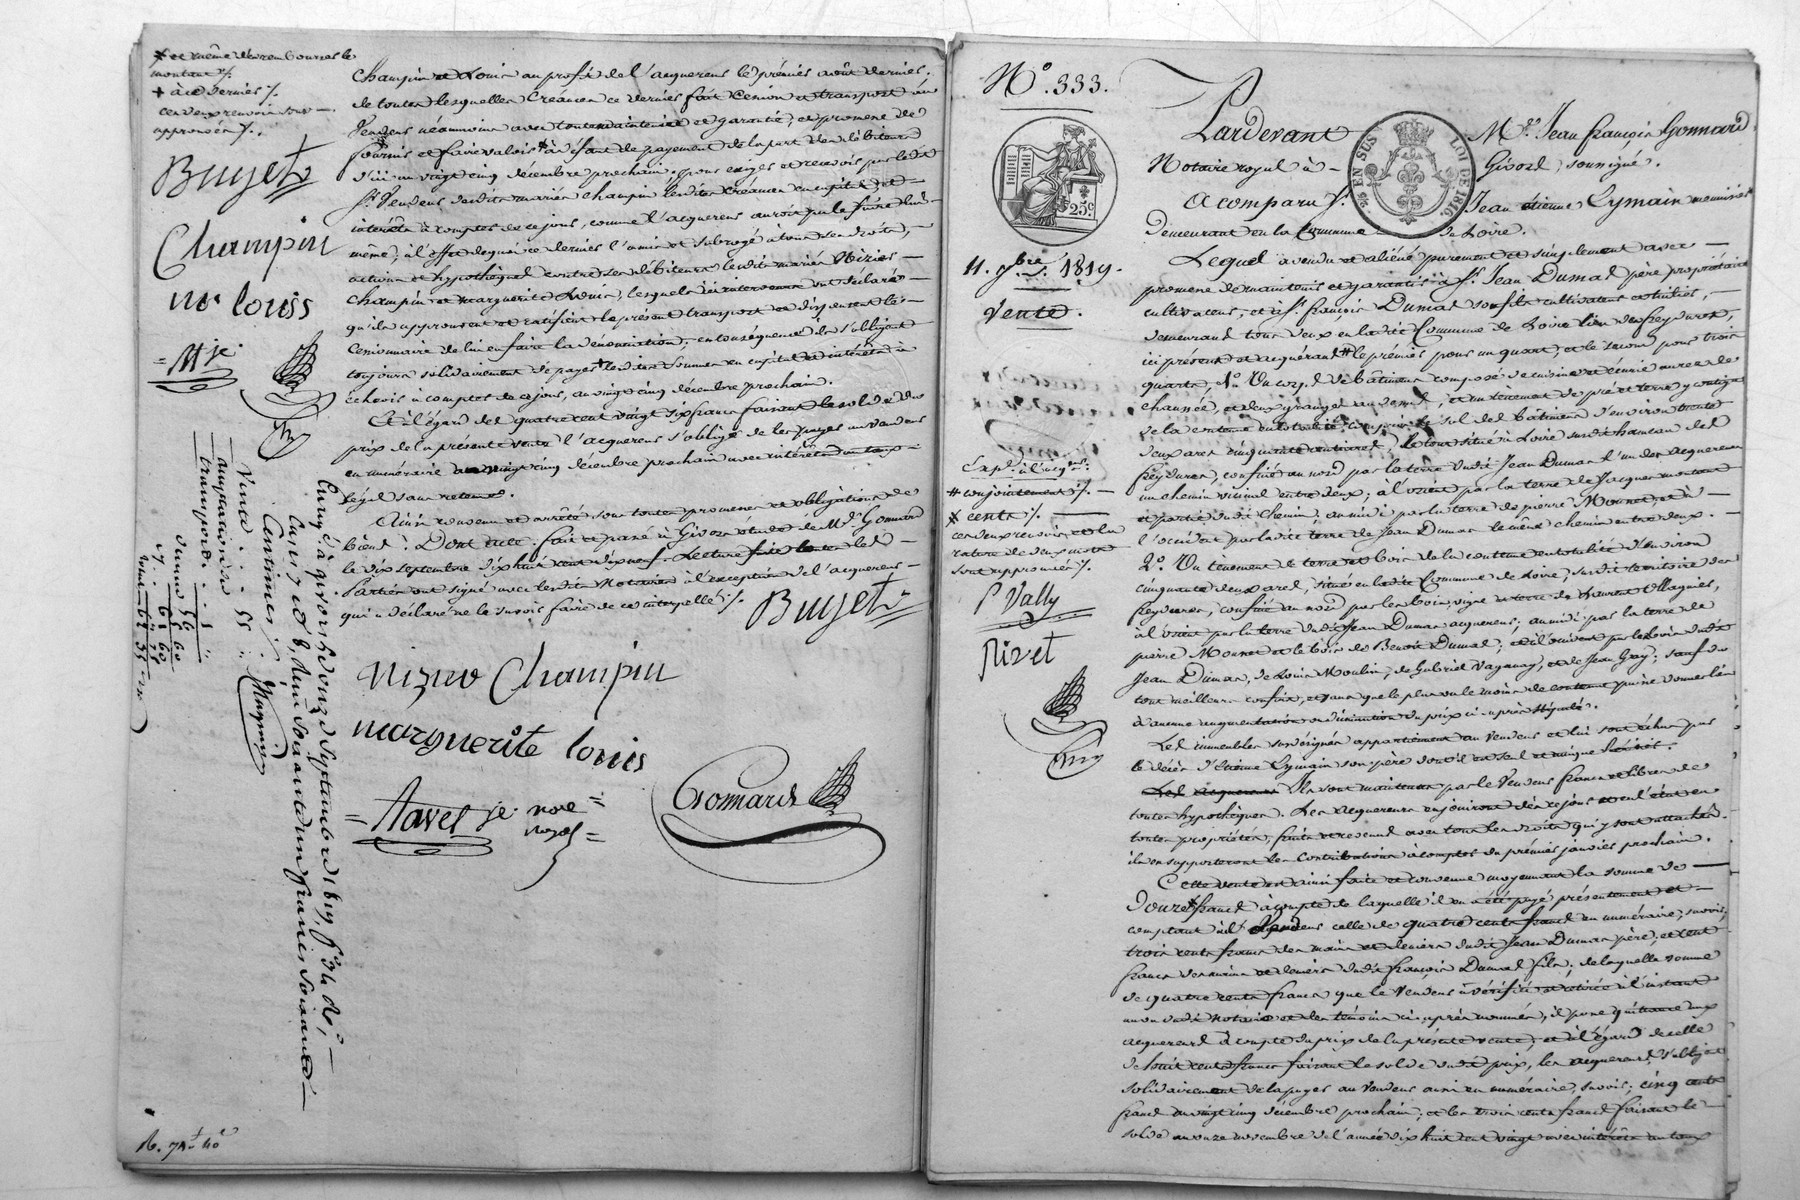 * et même d'en rembourser le
montant ./.
+ à ce dernier ./.
ces deux renvois sont
approuvés ./.
Buyet
Champin
mr louis
champin et Louis au profit de l'acquereur le premier août dernier,
de toutes lesquelles créances ce dernier fait cession et transport au
Vendeur néanmoins avec toute maintenue et garantie, et promesse de
fournir et faire valoir à défaut de payement de la part des débiteurs
d'ici au vingt cinq décembre prochain, pour exiger et recevoir par le dit
Sr Vendeur desdits mariés champin lesdites créances en capital et
intérêts à compter de ce jour, comme l'acquereur auroit pu le faire lui
même, à l'effet de quoi ce dernier l'a mis et subrogé à tous ses droits,
actions et hypothèques contre ses débiteurs lesdits mariés Nizier
champin et marguerite Louis, lesquels ici intervenus ont déclaré
qu'ils approuvent et ratifient le présent transport et dispensent le
cessionnaire de lui en faire la dénonciation, en conséquence ils s'obligent
toujours solidairement de payer + lesdites sommes en capital et intérêts à
échoir à compter de ce jour, au vingt cinq décembre prochain.
Et à l'égard des quatre cent vingt six francs faisant le solde du
prix de la présente vente l'acquereur s'oblige de les payer au vendeur
en numéraire au vingt cinq décembre prochain avec intérêts au taux
légal sans retenue.
Ainsi convenu et arrêté, sous toutes promesses et obligations de
biens. Dont acte. fait et passé à Givors étude de Me Gonnard
le dix septembre dix huit cent dix neuf. Lecture faite les
Parties ont signé avec lesdits Notaires à l'exception de l'acquereur
qui a déclaré ne le savoir faire de ce interpellé ./.
Buyet
nizier Champin
marguerite louis
Favel je nore
royal
Gonnard
Enreg. à givors le douze Septembre 1819, fo 34 Ro,
Cases 7 et 8, Reçu Soixante un francs Soixante
Centimes ./.
Vente .. 55 "
transport .. 1 "
61 60
N°. 333.
25c
EN SUS LOI DE 1816.
11. 7bre 1819.
Vente.
Pardevant Me Jean françois Gonnard,
Notaire royal à Givors, soussigné.
A comparu Sr. Jean etienne Eymain menuisier
Demeurant en la Commune de Loire.
Lequel a vendu et aliéné purement et simplement avec
promesse de maintenir et garantir à Sr. Jean Dumas père, propriétaire
cultivateur, et à Sr. françois Dumas son fils cultivateur et tuilier,
demeurant tous deux en ladite Commune de Loire lieu des freydures,
ici présents et acquerant # le premier pour un quart, et le second pour trois
quarts, 1o. Un corps de bâtiment composé de cuisine et écurie au rez de
chaussée, et deux granges au dessus, et un tènement de pré et terre y contigu
de la contenue en totalité compris le sol des bâtiments d'environ trente
deux ares cinquante centiares, le tout situé à Loire susdit hameau des
freydures, confiné au nord par la terre dudit Jean Dumas l'un des acquereurs
un chemin vicinal entre deux; à l'orient par la terre de Jacques
et partie dudit chemin, au midi par la terre de pierre Monnet, et à
l'occident par ladite terre de Jean Dumas le même chemin entre deux.
2o. Un tènement de terre et bois de la contenue en totalité d'environ
cinquante deux ares, situé en ladite Commune de Loire, susdit territoire des
freydures, confiné au nord par les bois, vigne et terre de
à l'orient par la terre dudit Jean Dumas acquereur; au midi par la terre de
pierre Monnet et le bois de Benoit Dumas; et à l'occident par les bois dudit
Jean Dumas, de Louis Moulin, de Gabriel Vaganay, et de Jean Gay; sauf du
tout meilleurs confins, et sans que le plus ou le moins de contenue puisse donner lieu
à aucune augmentation ou diminution du prix ci-après stipulé.
Les immeubles susdésignés appartiennent au vendeur et lui sont échus par
le décès d'Etienne Eymain son père dont il est seul et unique héritier.
Ils sont maintenus par le Vendeur francs et libres de
toutes hypothèques. Les acquereurs en jouiront dès ce jour
toutes propriétés, fruits et revenus avec tous les droits qui y sont attachés.
ils en supporteront les contributions à compter du premier janvier prochain.
Cette vente est ainsi faite et convenue moyennant la somme de
Douze * francs à compte de laquelle il en a été payé présentement et
comptant au Vendeur celle de quatre cents francs en numéraire, savoir,
trois cents francs des mains et deniers dudit Jean Dumas père, et cent
francs des mains et deniers dudit françois Dumas fils; de laquelle somme
de quatre cents francs que le Vendeur a vérifiée et retirée à l'instant
au vu dudit Notaire et des témoins ci-après nommés, il passe quittance aux
acquereurs à compte du prix de la présente vente, et à l'égard de celle
de huit cents francs faisant le solde dudit prix, les acquereurs s'obligent
solidairement de la payer au Vendeur aussi en numéraire, savoir; cinq cents
francs au vingt cinq décembre prochain; et les trois cents francs faisant le
solde au onze novembre de l'année dix huit cent vingt avec intérêts au taux
Exp. à l'acqr.
# conjointement ./.
* cents ./.
ces deux renvois et la
rature de deux mots
sont approuvés ./.
P Vally
Rivet